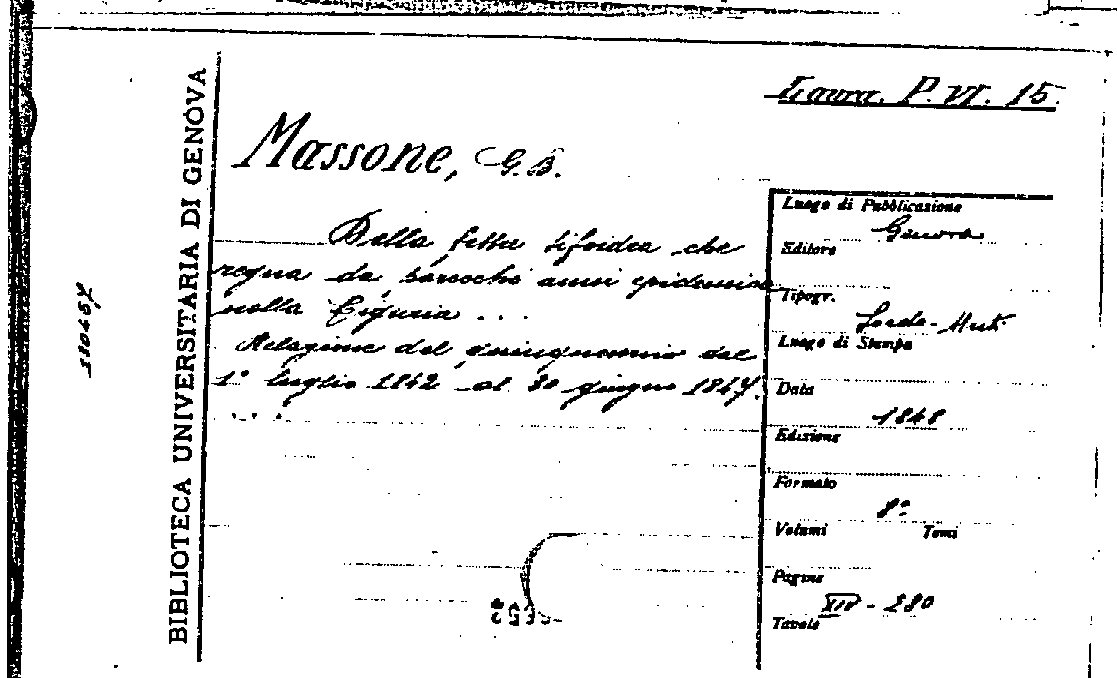 Laura. P. VI. 15.
Massone, G. B.
Della febbre tifoidea che
regna da parecchi anni epidemica
nella Liguria ...
Relazione del quinquennio dal
1° luglio 1842 al 30 giugno 1847.
...
BIBLIOTECA UNIVERSITARIA DI GENOVA
Luogo di Pubblicazione
Genova
Editore
Tipogr.
Sordo-Muti
Luogo di Stampa
Data
1848
Edizione
Formato
8°
Volumi Tomi
Pagine
XIV - 280
Tavole